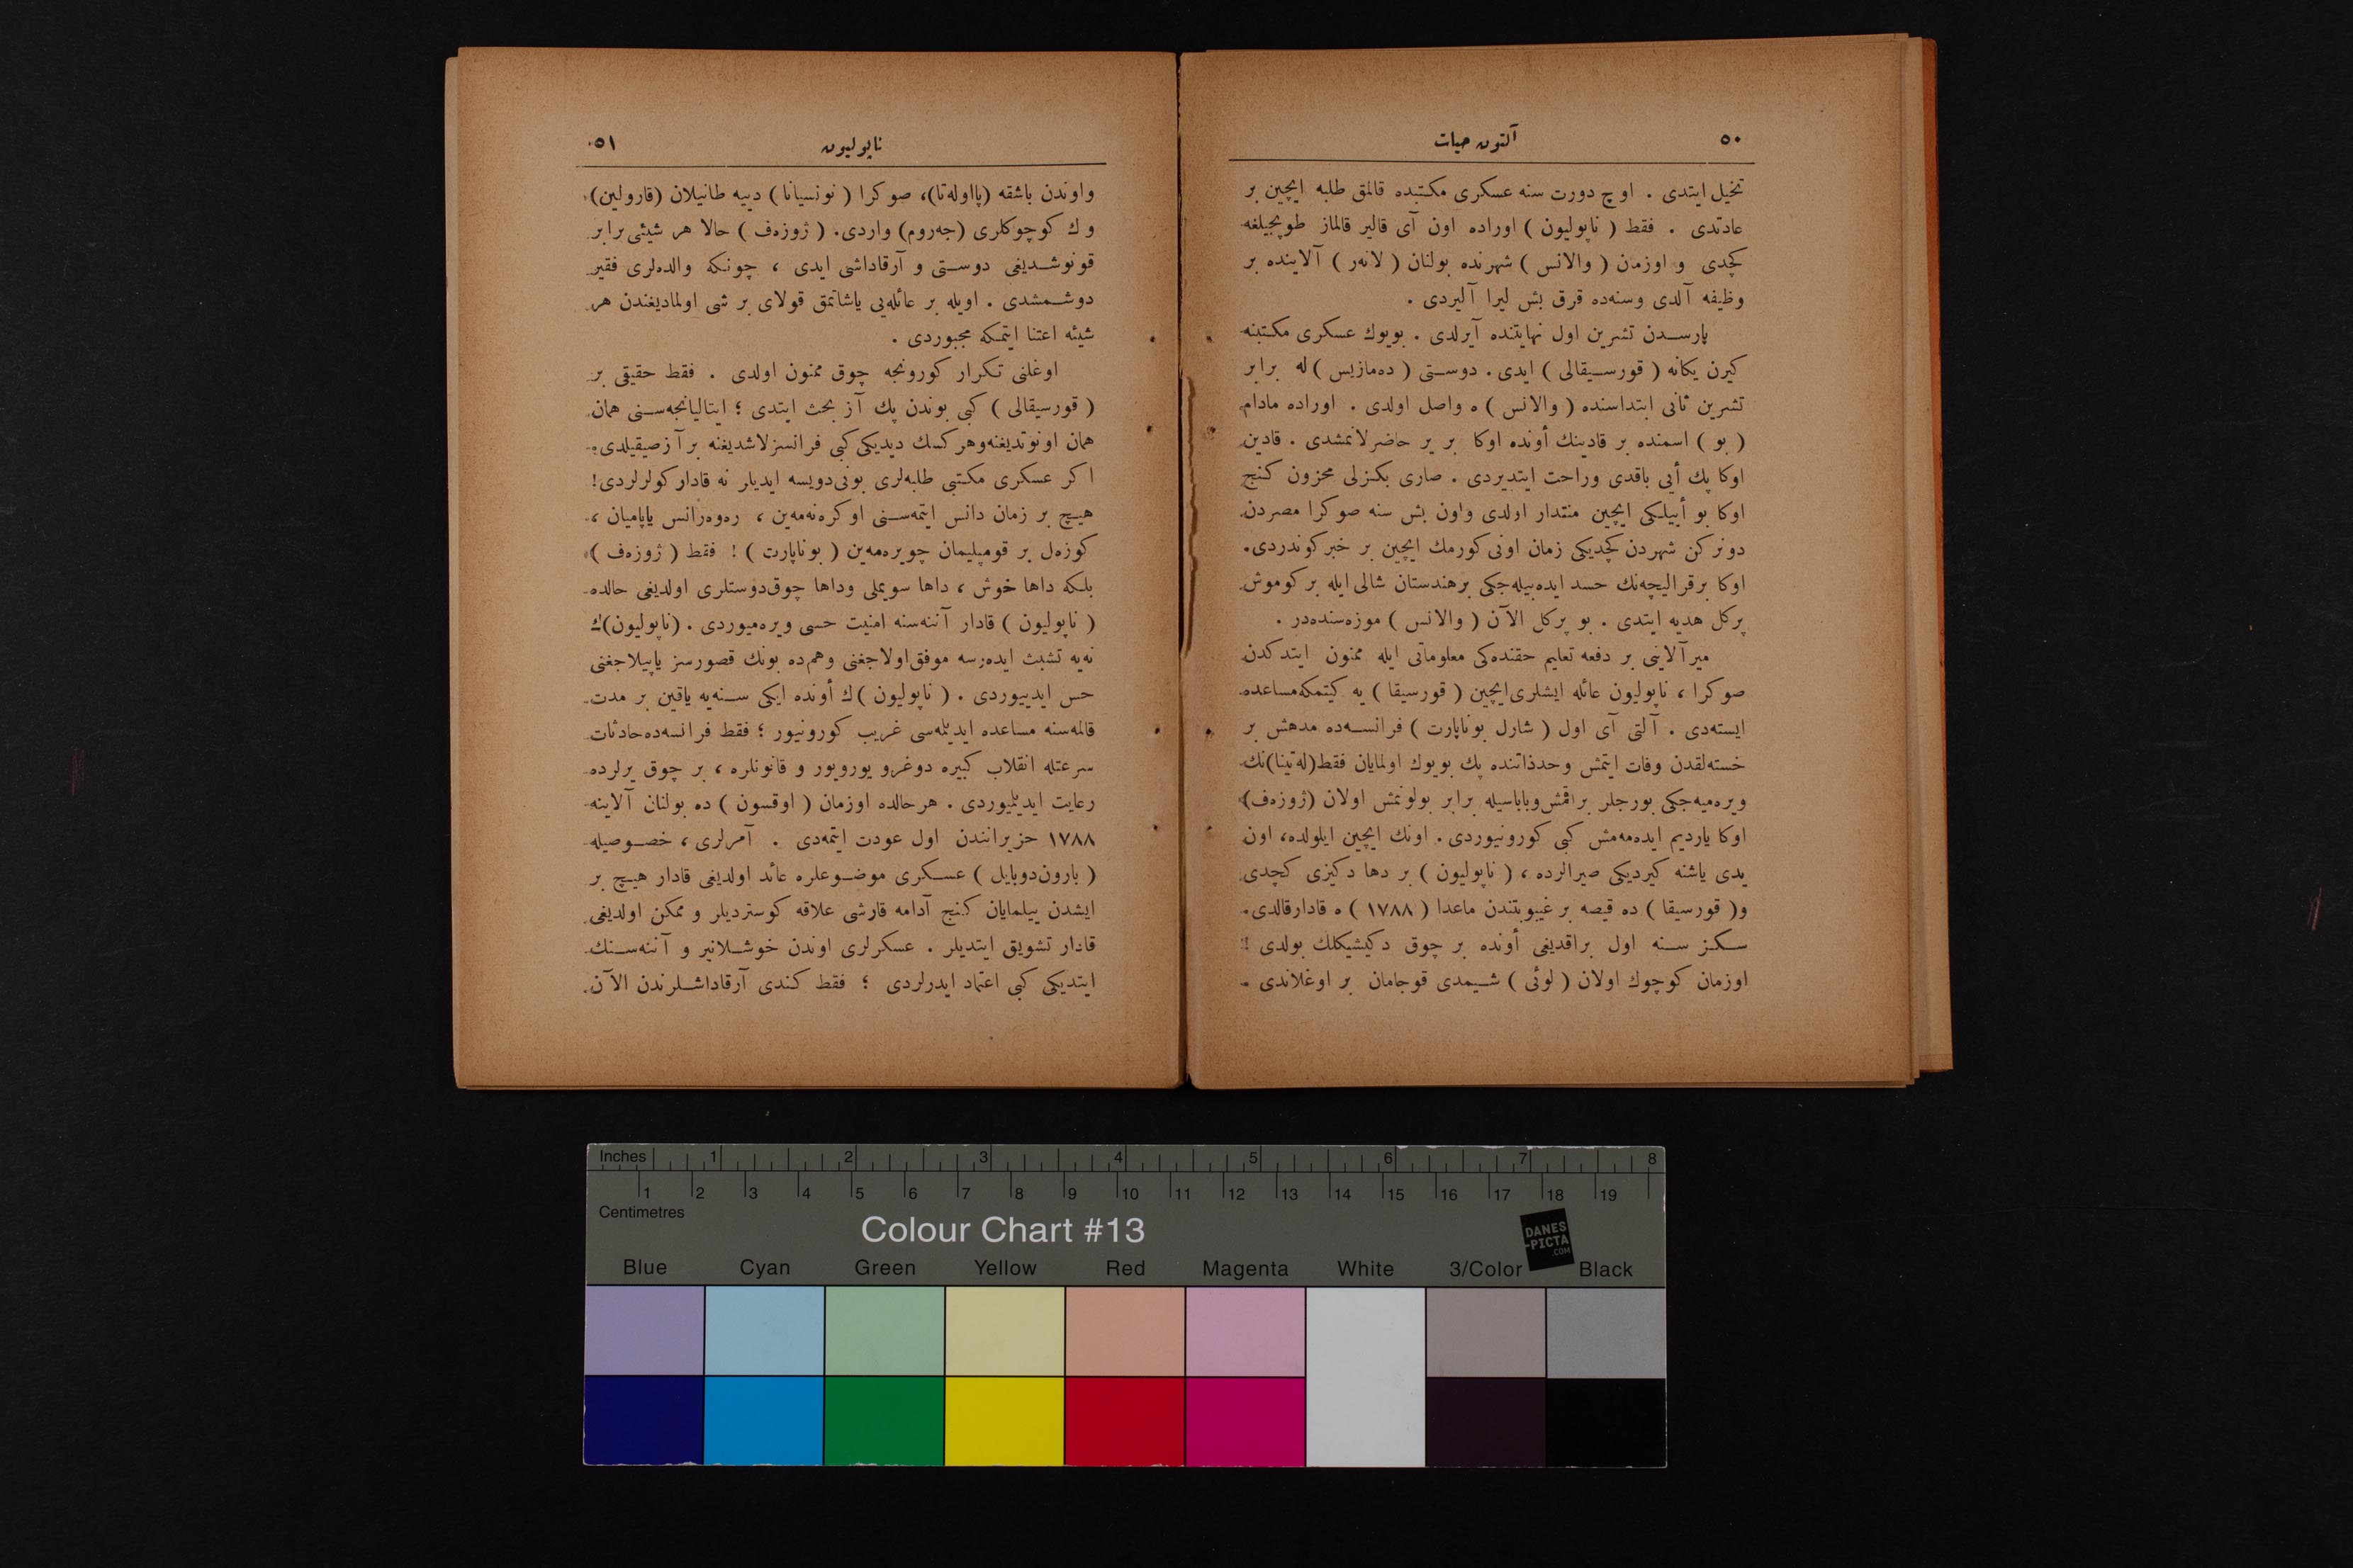 ٥٠
آلتون حیات
تخیل ایتدی . اوچ دورت سنه عسکری مکتبده قالمق طلبه ایچین بر
عادتدی . فقط ( ناپولیون ) اوراده اون آی قالیر قالماز طوپجیلغه
کچدی و اوزمان ( والانس ) شهرنده بولنان ( لانهر ) آلاینده بر
وظیفه آلدی وسنه‌ده قرق بش لیرا آلیردی .
پارســدن تشرین اول نهایتنده آیرلدی . بویوك عسکری مکتبنه
کیرن یکانه ( قورســیقالی ) ایدی . دوستی ( ده‌مازیس ) له برابر
تشرین ثانی ابتداسنده ( والانس ) ه واصل اولدی . اوراده مادام
( بو ) اسمنده بر قادینك أونده اوکا بر یر حاضرلانمشدی . قادین
اوکا پك أیی باقدی وراحت ایتدیردی . صاری بکزلی محزون کنج
اوکا بو أییلکی ایچین منتدار اولدی واون بش سنه صوکرا مصردن
دونرکن شهردن کچدیکی زمان اونی کورمك ایچین بر خبر کوندردی.
اوکا برقرالیچه‌نك حسد ایده‌بیله‌جکی برهندستان شالی ایله بر کوموش
پرکل هدیه ایتدی . بو پرکل الآن ( والانس ) موزه‌سنده‌در .
میرآلاینی بر دفعه تعلیم حقنده‌کی معلوماتی ایله ممنون ایتدکدن
صوکرا ، ناپولیون عائله ایشلری‌ایچین ( قورسیقا ) یه کیتمکه‌مساعده
ایسته‌دی . آلتی آی اول ( شارل بوناپارت ) فرانســه‌ده مدهش بر
خسته‌لقدن وفات ایتمش وحدذاتنده پك بویوك اولمایان فقط(له‌تینا)نك
ویره‌میه‌جکی بورجلر براقمش‌وباباسیله برابر بولونمش اولان (ژوزه‌ف)
اوکا یاردیم ایده‌مه‌مش کبی کورونیوردی . اونك ایچین ایلولده، اون
یدی یاشنه کیردیکی صیرالرده ، ( ناپولیون ) بر دها دکیزی کچدی
و( قورسیقا ) ده قیصه بر غیبوبتندن ماعدا ( ١٧٨٨ ) ه قادارقالدی.
سـکـز سـنه اول براقدیغی أونده بر چوق دکیشیکلك بولدی !
اوزمان کوچوك اولان ( لوئی ) شـیمدی قوجامان بر اوغلاندی .
ناپولیون
٥١
واوندن باشقه (پااوله‌تا)، صوکرا ( نونسیانا ) دییه طانیلان (قارولین)
وك کوچوکلری (جه‌روم) واردی. ( ژوزه‌ف ) حالا هر شیئی برابر
قونوشـدیغی دوسـتی و آرقاداشی ایدی ، چونکه والده‌لری فقیر
دوشـمشدی . اویله بر عائله‌یی یاشاتمق قولای بر شی اولمادیغندن هر
شیئه اعتنا ایتمکه مجبوردی .
اوغلنی تکرار کورونجه چوق ممنون اولدی . فقط حقیقی بر
( قورسیقالی ) کبی بوندن پك آز بحث ایتدی ؛ ایتالیانجه‌سـنی همان
همان اونوتدیغنه‌وهرکسك دیدیکی کبی فرانسزلاشدیغنه برآزصیقیلدی.
اکر عسکری مکتبی طلبه‌لری بونی‌دویسه ایدیلر نه قادار کولرلردی!
هیـچ بر زمان دانس ایتمه‌سـنی اوکره‌نه‌مه‌ین ، ره‌وه‌رانس یاپامیان ،
کوزه‌ل بر قومپلیمان چویره‌مه‌ین ( بوناپارت ) ! فقط ( ژوزه‌ف )
بلکه داها خوش ، داها سویملی وداها چوق‌دوستلری اولدیغی حالده
( ناپولیون ) قادار آننه‌سنه امنیت حسی ویره‌میوردی . (ناپولیون)ك
نه‌یه تشبث ایده‌رسه موفق‌اولاجغنی وهم‌ده بونك قصورسز یاپیلاجغنی
حس ایدییوردی . ( ناپولیون )ك أونده ایکی سـنه‌یه یاقین بر مدت
قالمه‌سنه مساعده ایدیلمه‌سی غریب کورونیور ؛ فقط فرانسه‌ده‌حادثات
سرعتله انقلاب کبیره دوغرو یورویور و قانونلره ، بر چوق یرلرده
رعایت ایدیلمیوردی . هرحالده اوزمان ( اوقسون ) ده بولنان آلاینه
١٧٨٨ حزیرانندن اول عودت ایتمه‌دی . آمرلری ، خصـوصیله
( بارون‌دوبایل ) عسـکری موضـوعلره عائد اولدیغی قادار هیـچ بر
ایشدن ییلمایان کنج آدامه قارشی علاقه کوستردیلر و ممکن اولدیغی
قادار تشویق ایتدیلر . عسکرلری اوندن خوشـلانیر و آننه‌سـنك
ایتدیکی کبی اعتماد ایدرلردی ؛ فقط کندی آرقاداشـلرندن الآن
Inches 1 2 3 4 5 6 7 8
1 2 3 4 5 6 7 8 9 10 11 12 13 14 15 16 17 18 19
Centimetres
Colour Chart #13
DANES
-PICTA
.COM
Blue Cyan Green Yellow Red Magenta White 3/Color Black